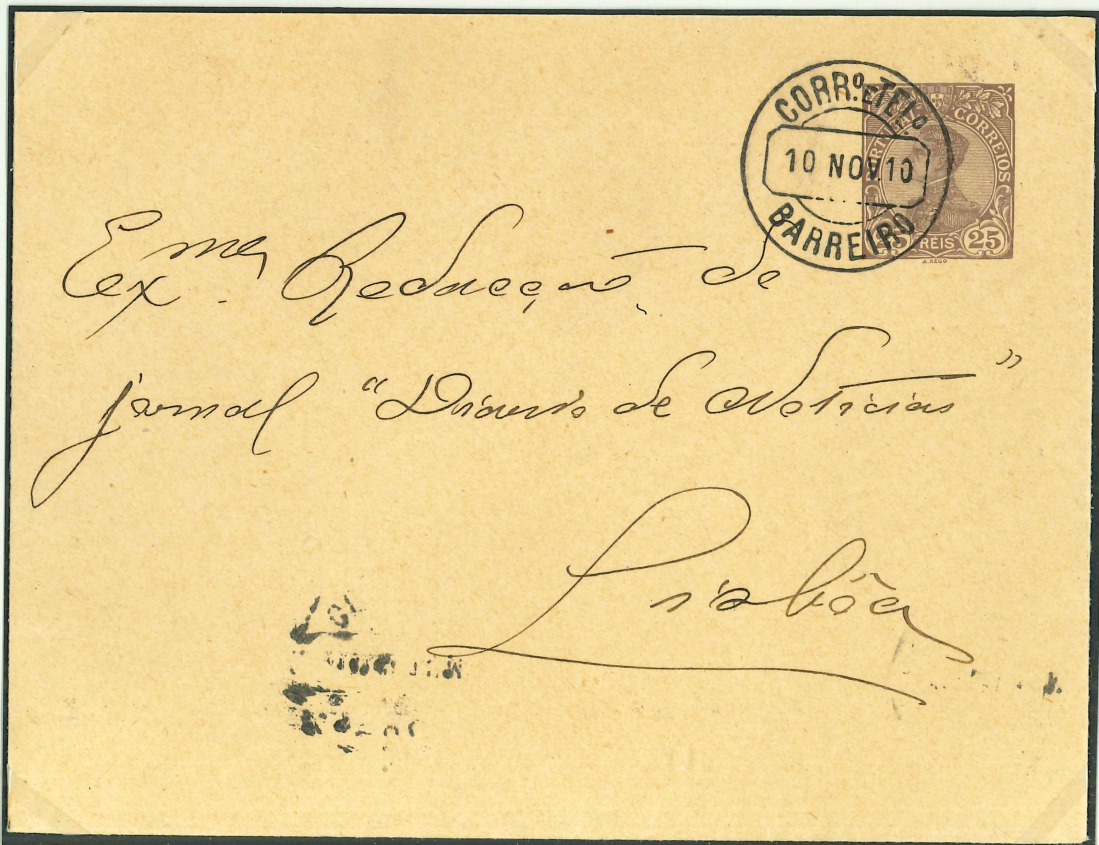 CORRº. E TELº
10 NOV. 10
BARREIRO
CORREIOS
RÉIS 25
A. REGO
Exma. Redacção de
jornal "Diario de Noticias"
Lisbôa